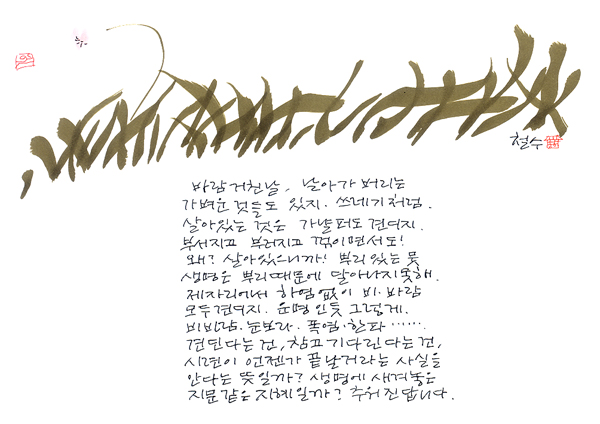 철수
바람 거친날, 날아가 버리는
가벼운 것들도 있지. 쓰레기처럼.
살아있는 것은 가냘퍼도 견디지.
부서지고 부러지고 꺾이면서도!
왜? 살아있으니까! 뿌리 있는 뭇
생명은 뿌리때문에 달아나지못해.
제자리에서 하염없이 비·바람
모두 견디지. 운명인듯 그렇게.
비바람·눈보라·폭염·한파……
견딘다는건, 참고 기다린다는건,
시련이 언젠가 끝날거라는 사실을
안다는 뜻일까? 생명에 새겨놓은
지문같은 지혜일까? 추워진답니다.